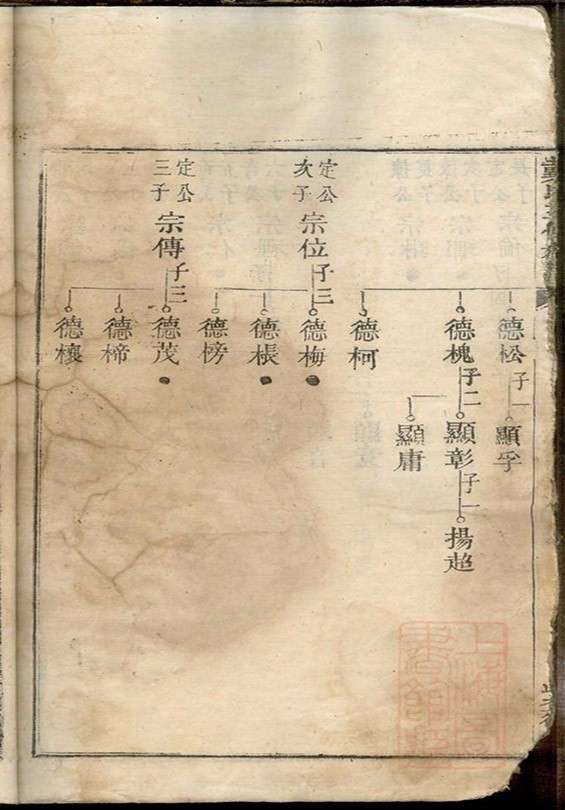 德松
子一
顯孚
德槐
子二
顯彰
子一
揚超
顯庸
德柯
定公
次子
宗位
子三
德梅
德棖
德榜
定公
三子
宗傳
子三
德茂
德楴
德欀
上海圖
書館藏